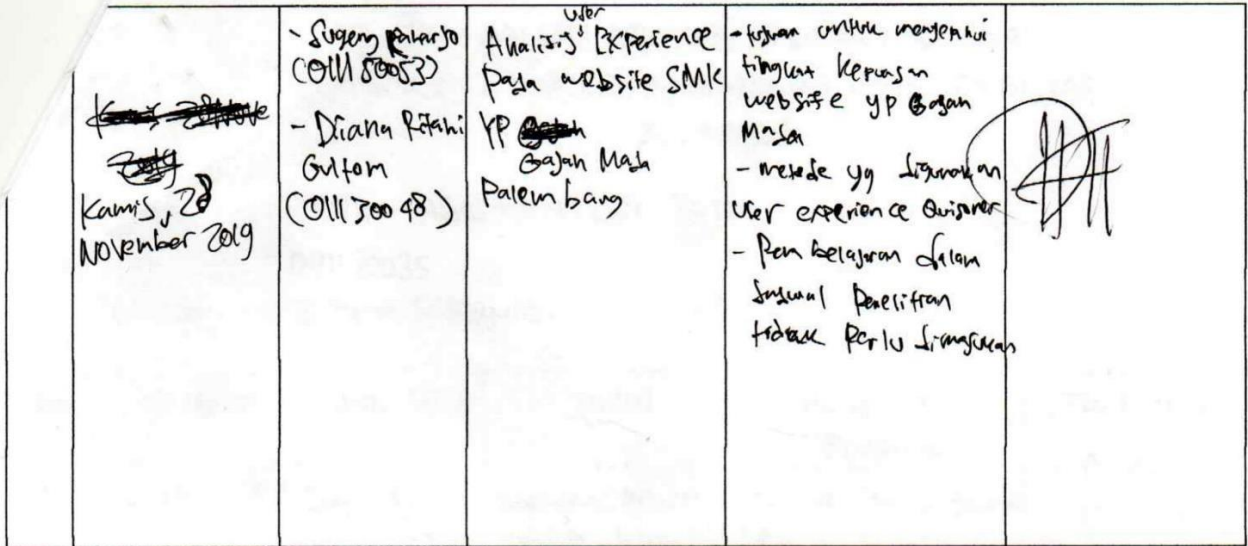 Kamis 28
November 2019
- Sugeng Raharjo
(011150053)
- Diana Ritahi
Gultom
(011130048)
user
Analisis Experience
pada website SMK
YP
Gajah Mada
Palembang
- tujuan untuk mengetahui
tingkat kepuasan
website yp Gajah
Mada
- metode yg digunakan
User experience Quisoner
- Pembelajaran dalam
Jadwal Penelitian
tidak Perlu dimasukan